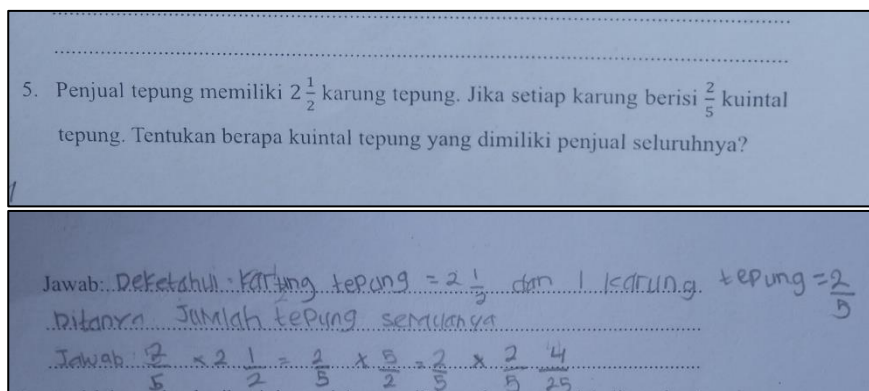 5. Penjual tepung memiliki 2 1/2 karung tepung. Jika setiap karung berisi 2/5 kuintal
tepung. Tentukan berapa kuintal tepung yang dimiliki penjual seluruhnya?
Jawab: Deketahui karung tepung = 2 1/2 dan 1 karung tepung = 2/5
Ditanya Jumlah tepung semuanya
Jawab 2/5 × 2 1/2 = 2/5 × 5/2 = 2/5 × 2/5 4/25